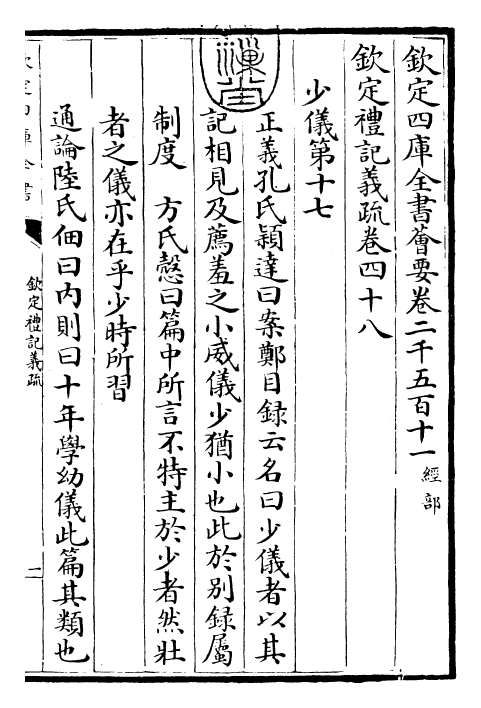 欽定四庫全書薈要卷二千五百十一 經部
欽定禮記義疏卷四十八
少儀第十七
正義孔氏穎達曰案鄭目録云名曰少儀者以其
記相見及薦羞之小威儀少猶小也此於别録屬
制度 方氏慤曰篇中所言不特主於少者然壯
者之儀亦在乎少時所習
通論陸氏佃曰内則曰十年學幼儀此篇其類也
欽定四庫全書
欽定禮記義疏
二